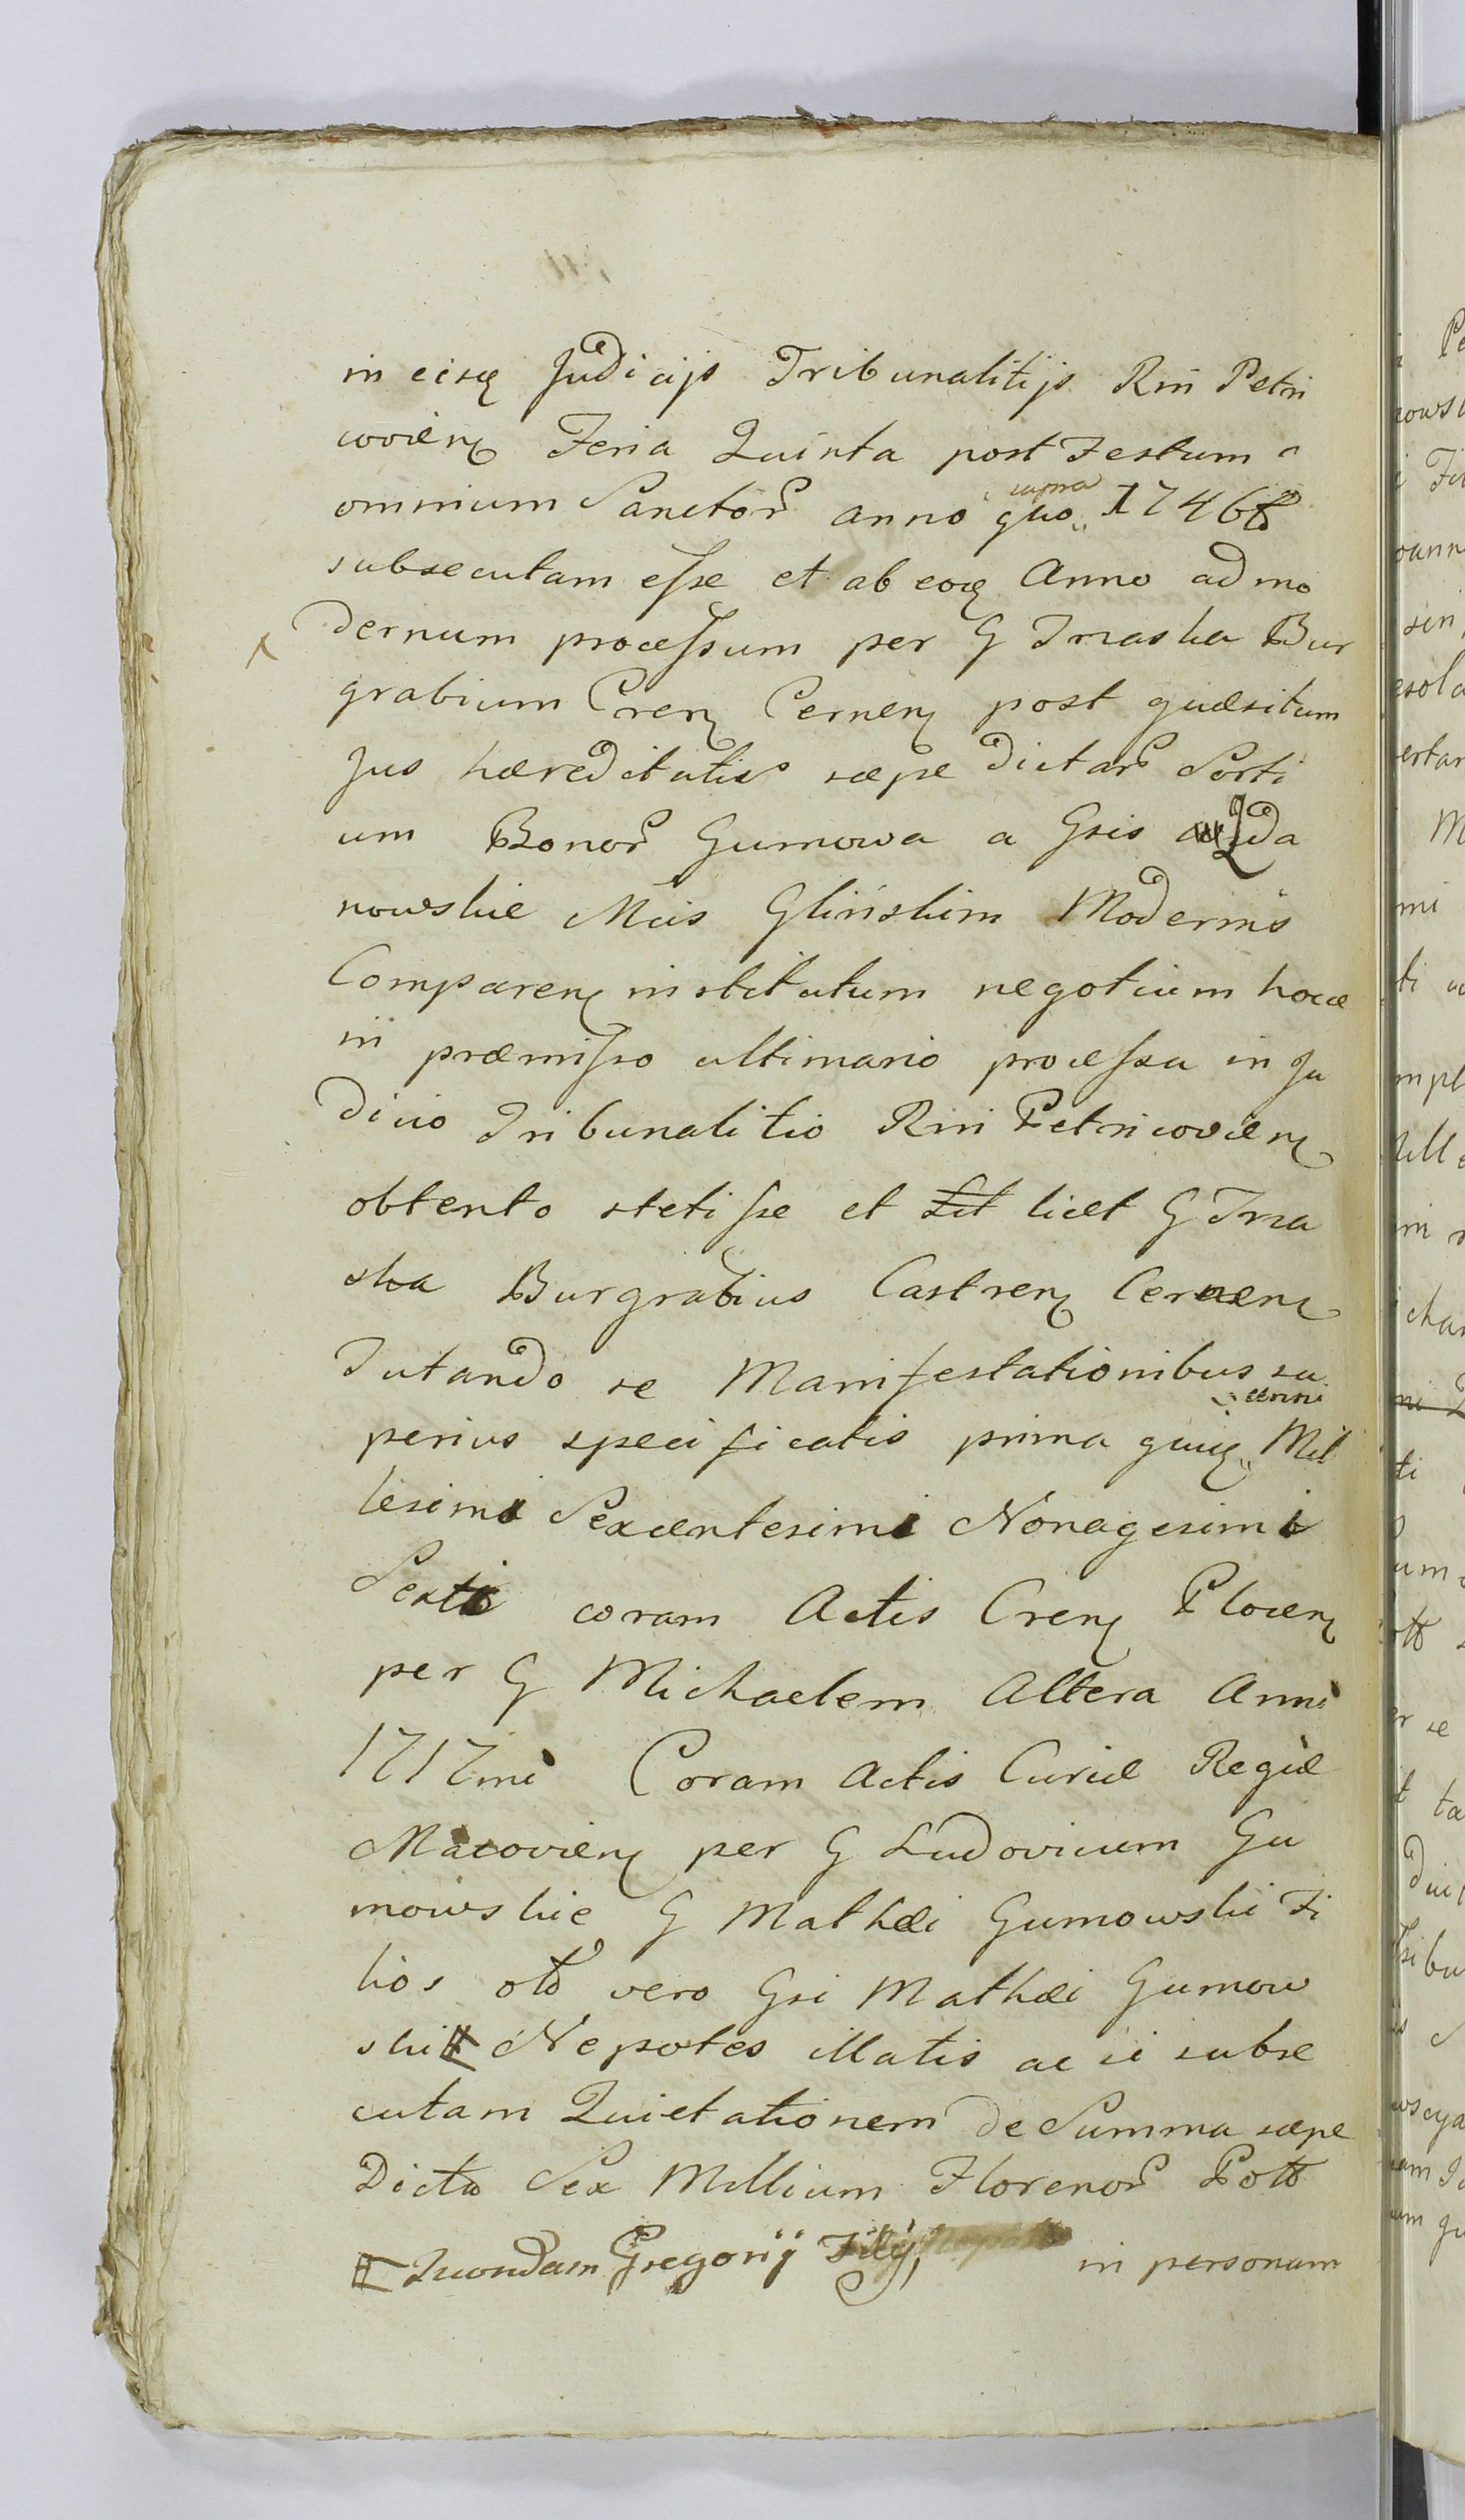 in eisq Judicijs Tribunalitijs Rni Petri
covien Feria Quinta post Festum
omnium Sanctor anno supra quo 1746to
subsecutam esse et ab eoq Anno ad mo
dernum processum per G Trzaska Bur
grabium Cren Cernen post quæsitum
Jus hæreditatis sæpe dictar Sorti
um Bonor Gumowa a Gsis
nowskie Mcis Glinskim Modernis
Comparen institutum negotium hocce
in præmisso ultimario processu in Ju
dicio Tribunalitio Rni Petricovien
obtento stetisse et licet G Trza
ska Burgrabius Castren Cernen
Tutando se Manifestationibus su
perius specificatis prima quiq anni Mil
lesimi Sexcentesimi Nonagesimi
Sexti coram Actis Cren Plocen
per G Michaelem Altera Anni
1717mi Coram Actis Curiæ Regiæ
Macovien per G Ludovicum Gu
mowskie G Mathæi Gumowski Fi
lios otb vero Gsi Mathæi Gumow
ski Nepotes illatis ac si subse
cutam Quietationem de Summa sæpe
Dicta Sex Millium Florenor Poll
Quondam Gregorij Filij,
in personam